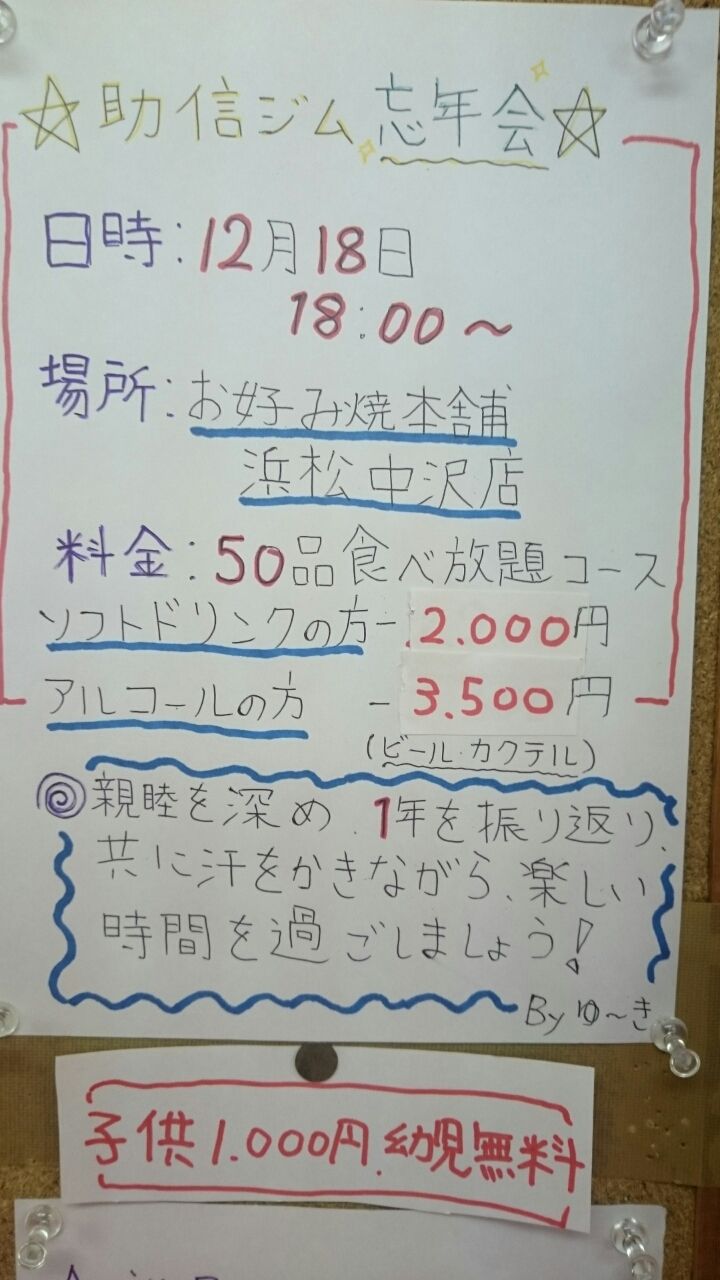 ☆助信ジム忘年会☆
日時:12月18日
18:00～
場所:お好み焼本舗
浜松中沢店
料金:50品食べ放題コース
ソフトドリンクの方-2.000円
アルコールの方 -3.500円
(ビール.カクテル)
◎親睦を深め.1年を振り返り、
共に汗をかきながら、楽しい
時間を過ごしましょう!
By ゆ～き
子供1.000円.幼児無料